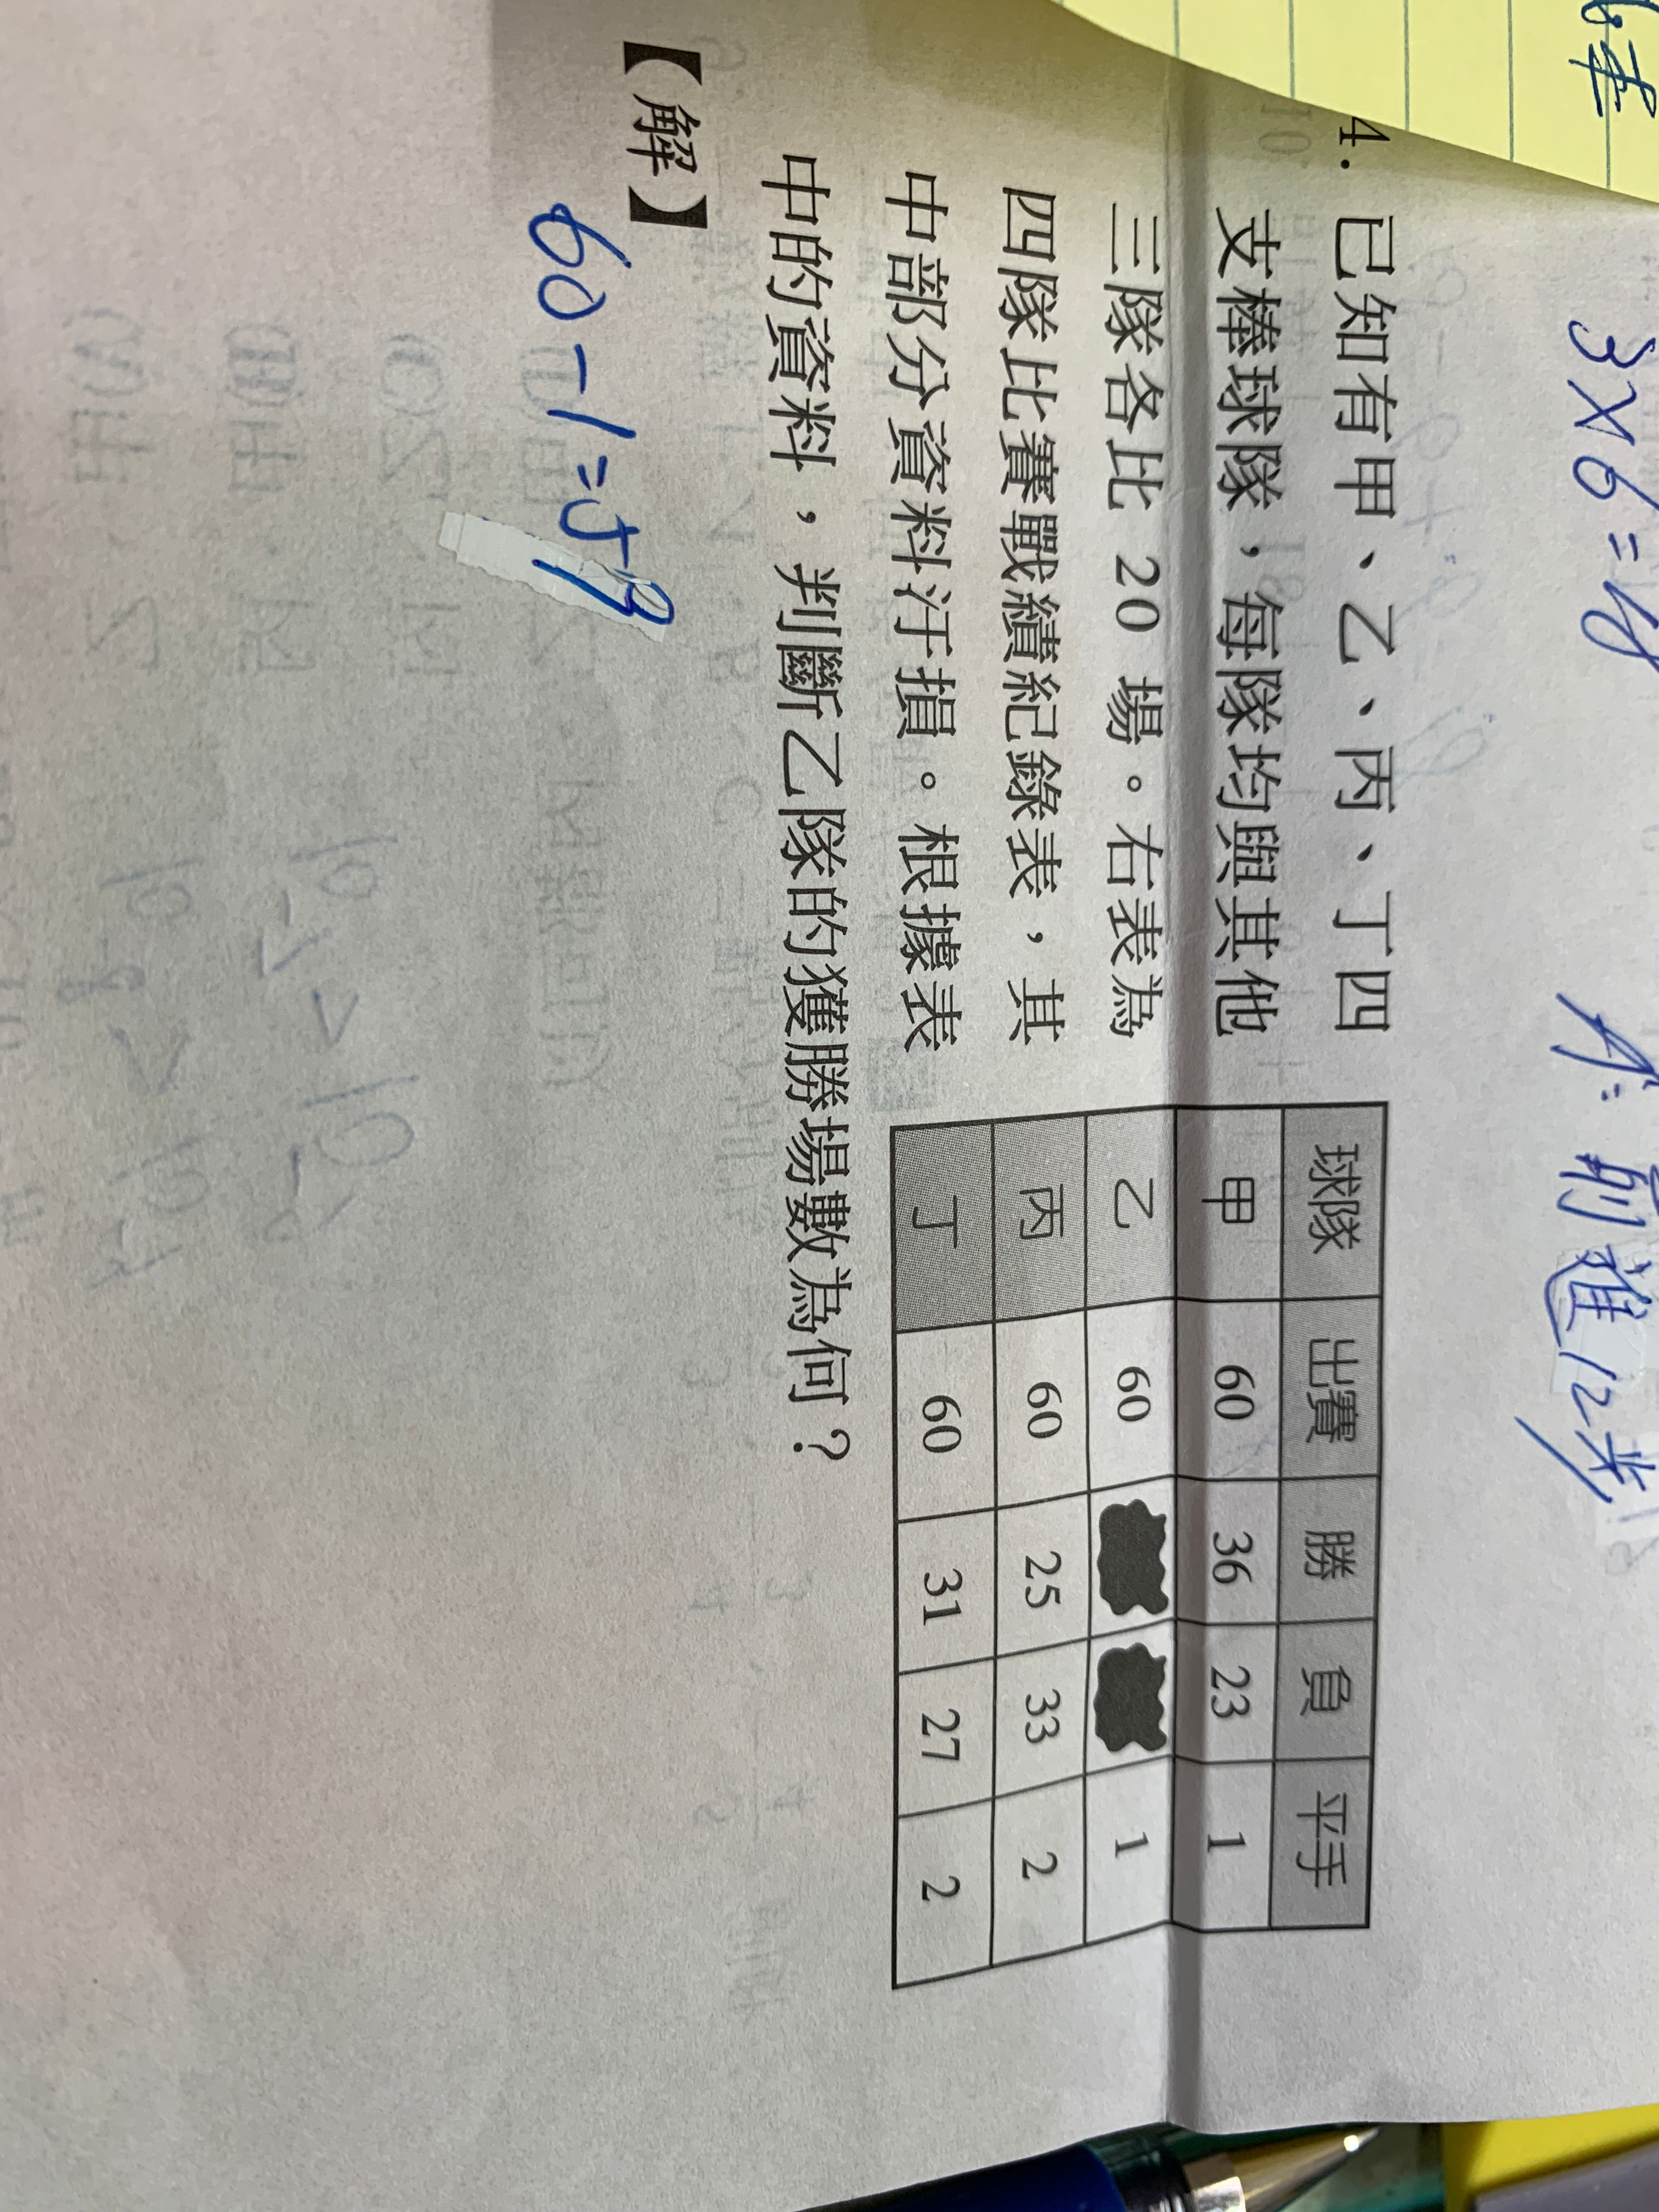 3×6=18
A:前進12步
4. 已知有甲、乙、丙、丁四
支棒球隊，每隊均與其他
三隊各比 20 場。右表為
四隊比賽戰績紀錄表，其
中部分資料汙損。根據表
中的資料，判斷乙隊的獲勝場數為何？
球隊 出賽 勝 負 平手
甲 60 36 23 1
乙 60 1
丙 60 25 33 2
丁 60 31 27 2
【解】
60-1=59